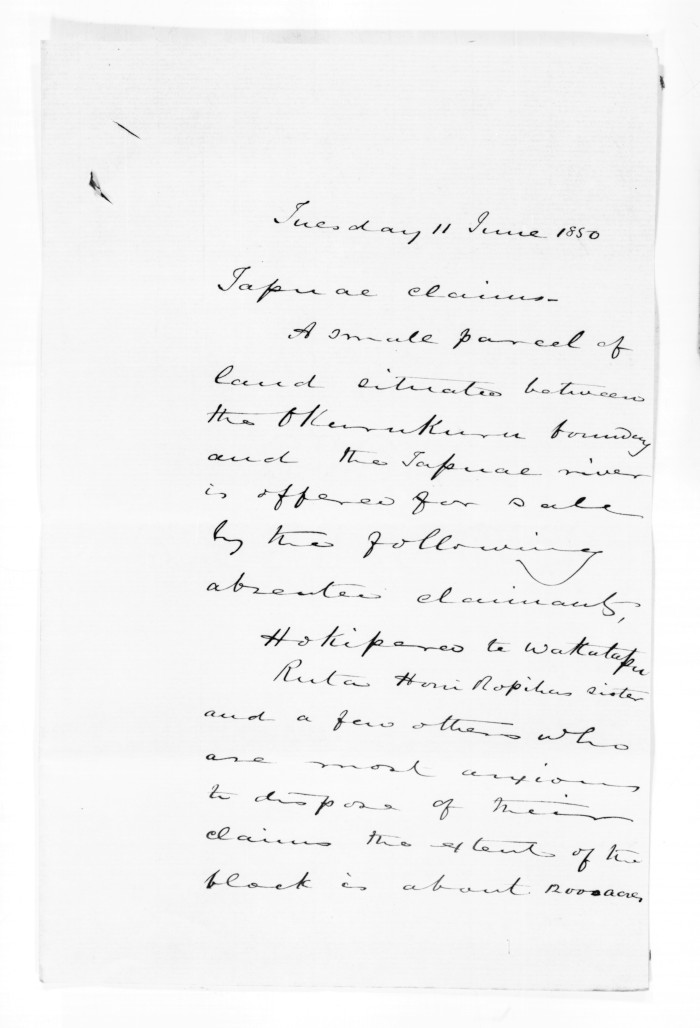 Tuesday 11 June 1850
Tapuae claims -
A small parcel of
land situated between
the Okurukuru boundary
and the Tapuae river
is offered for sale
by the following
absentee claimants,
Hokipera te Wakatapu
Ruta Honi Ropihas sister
and a few others who
are most anxious
to dispose of their
claims the extent of the
block is about acres